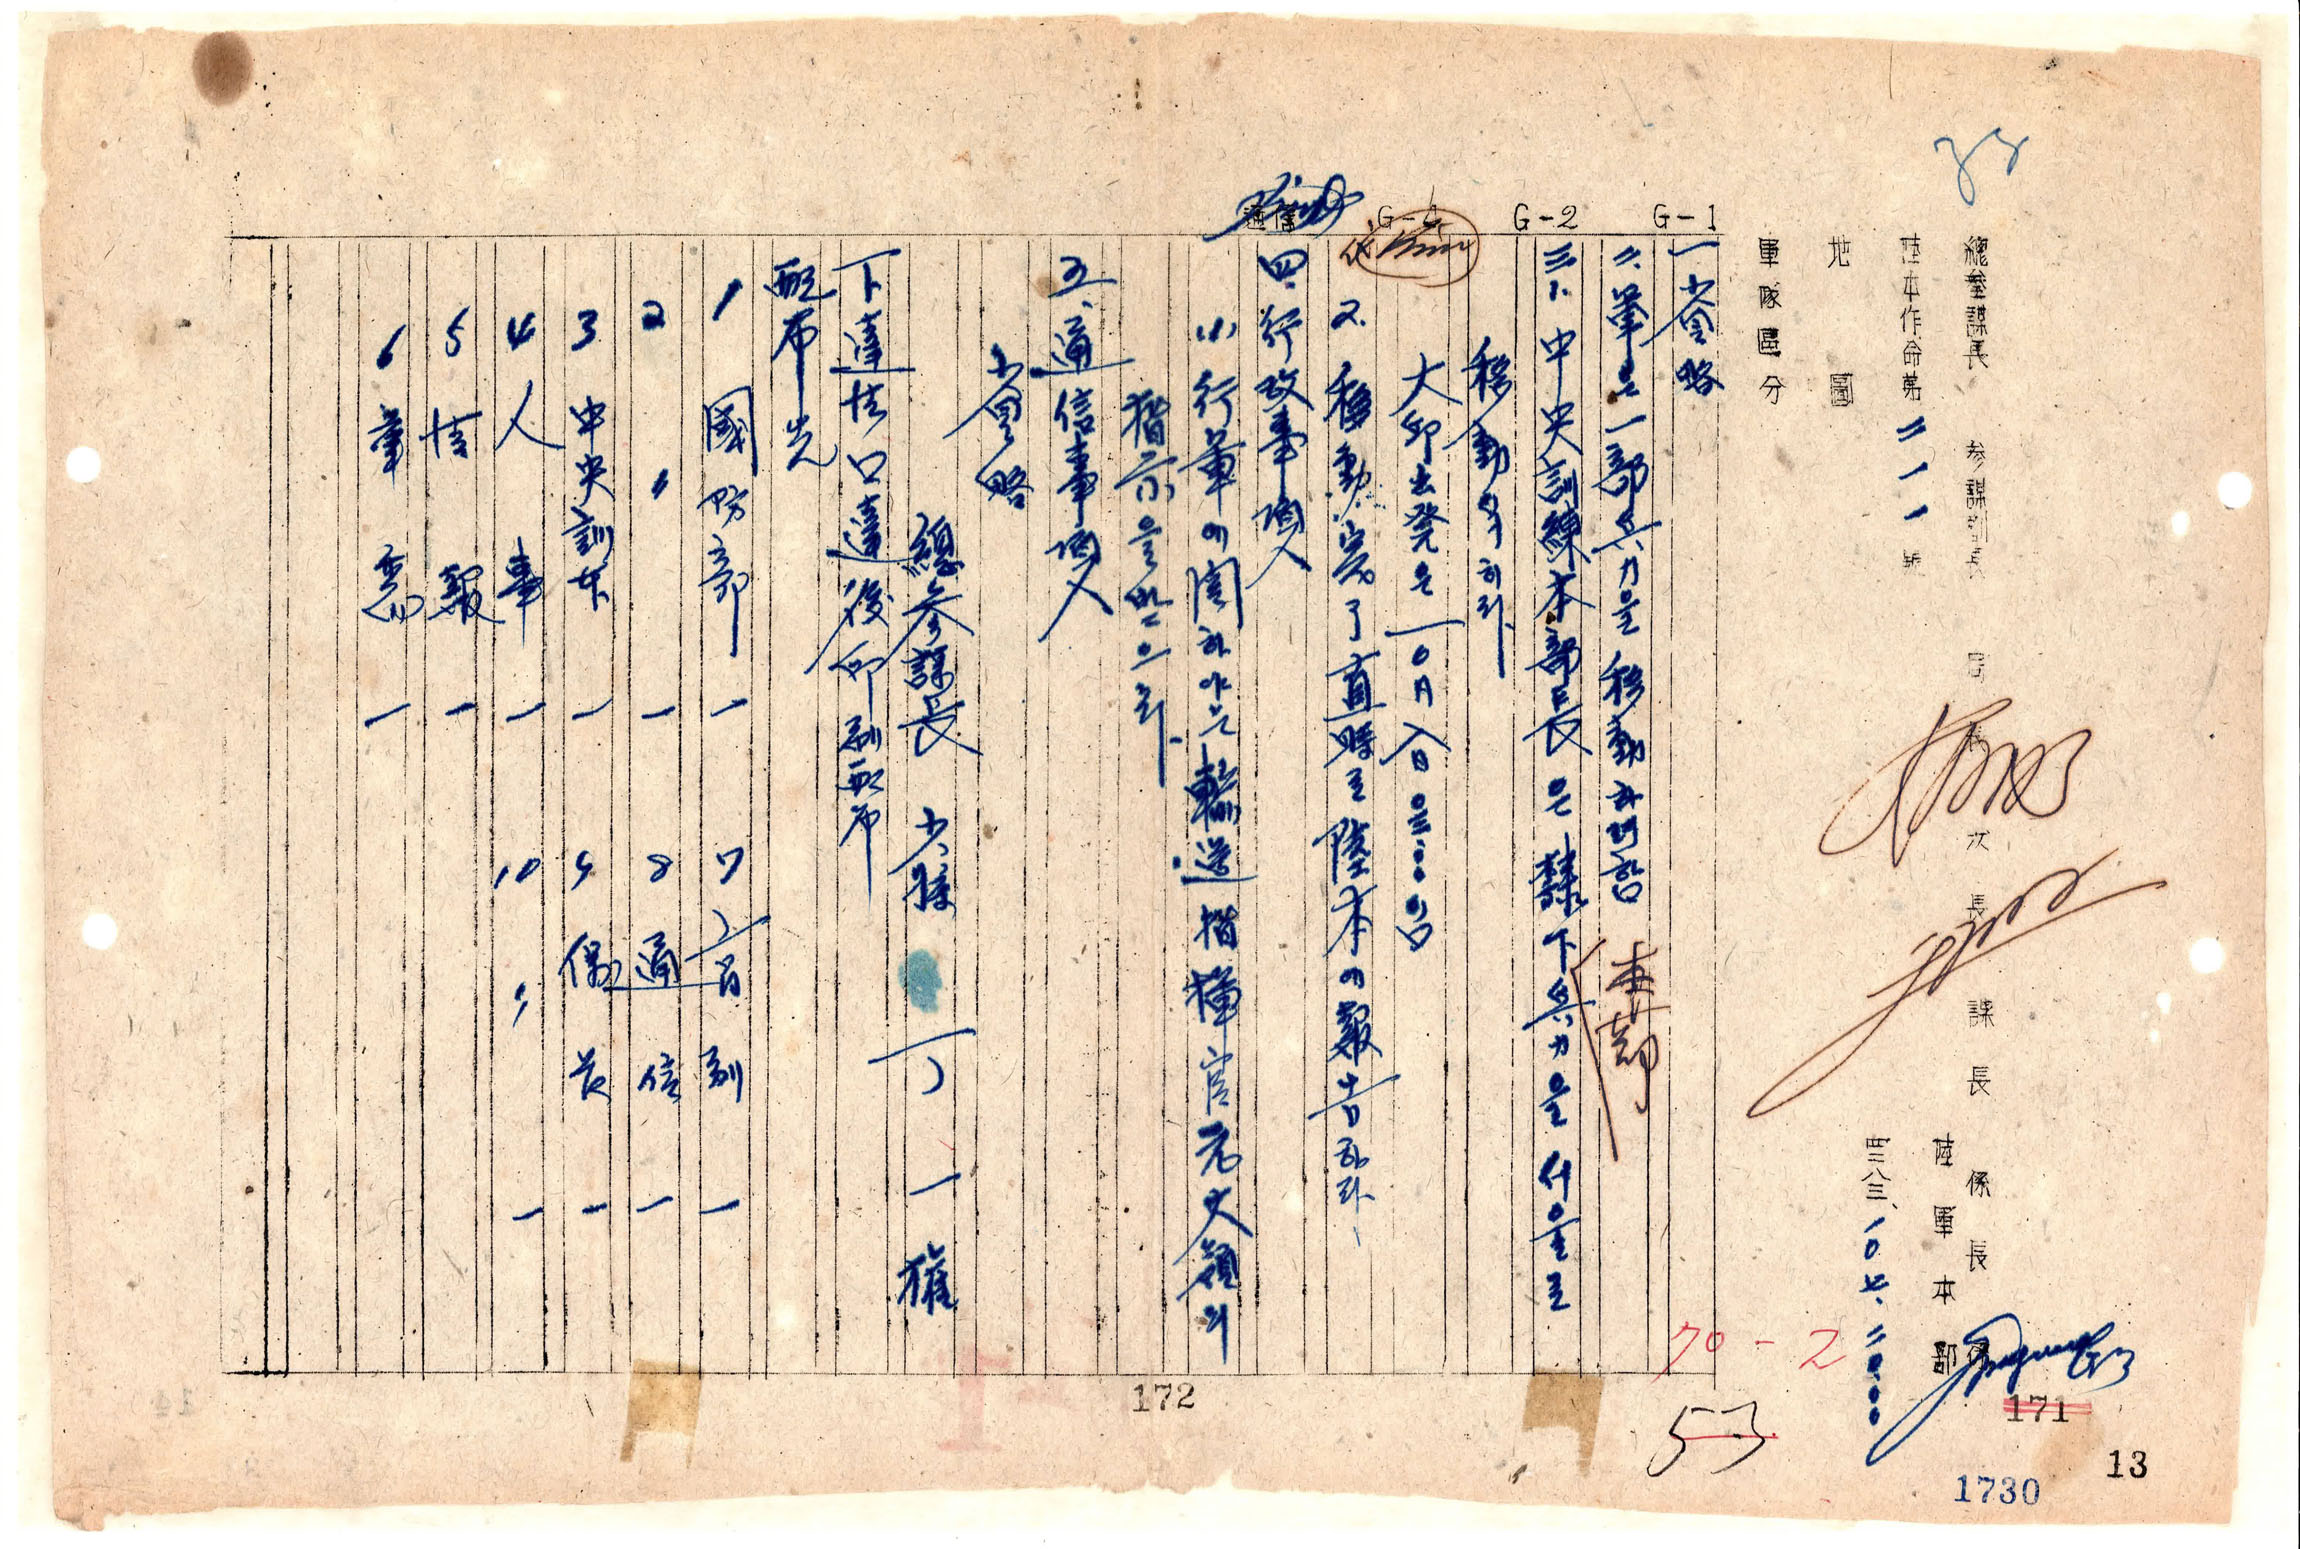 總參謀長 參謀副長 局長 次長 課長 係長
陸本作命第二一一號 陸軍本部
四二八三、一0、七、二0:00
地圖
軍隊區分
G-1
G-2
G-4
通信
一、省略
二、軍은一部兵力을移動하려함
三、1、中央訓練本部長은隸下兵力을서울로
移動식히라
大邱出發은一0月八日
2、移動完了直時로陸本에報告하라
四、行政事項
(1)行軍에関하야는輸送指揮官元大領의
指示을받으라
五、通信事項
省略
總參謀長 少將 丁一權
下達法 口達後印刷配布
配布先
1 國防部 一
2 〃 一
3 中央訓本 一
4 人事 一
5 情報 一
6 軍需 一
7 高副 一
8 通信 一
9 保管 一
10 〃 一
本部
172
171
70-2
53
13
1730